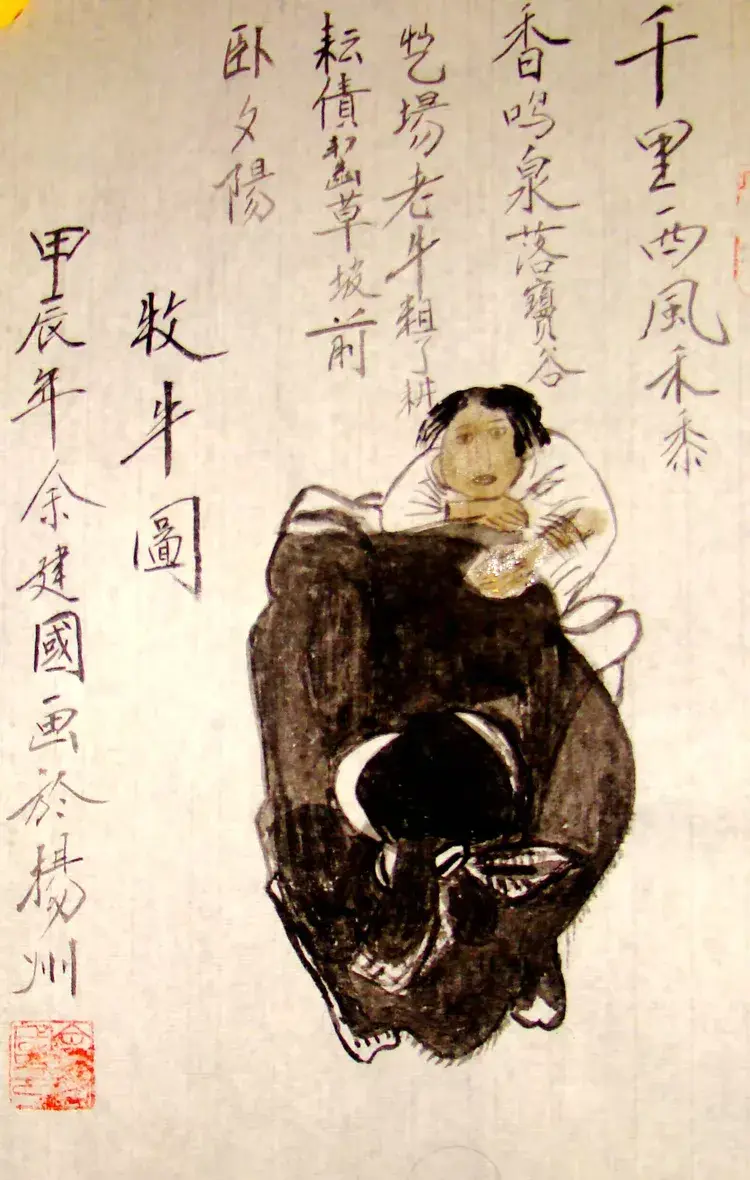 千里西風禾黍
香鸣泉落寶谷
場老牛粗了耕
耘債齧草坡前
卧夕陽
牧牛圖
甲辰年余建國画於揚州